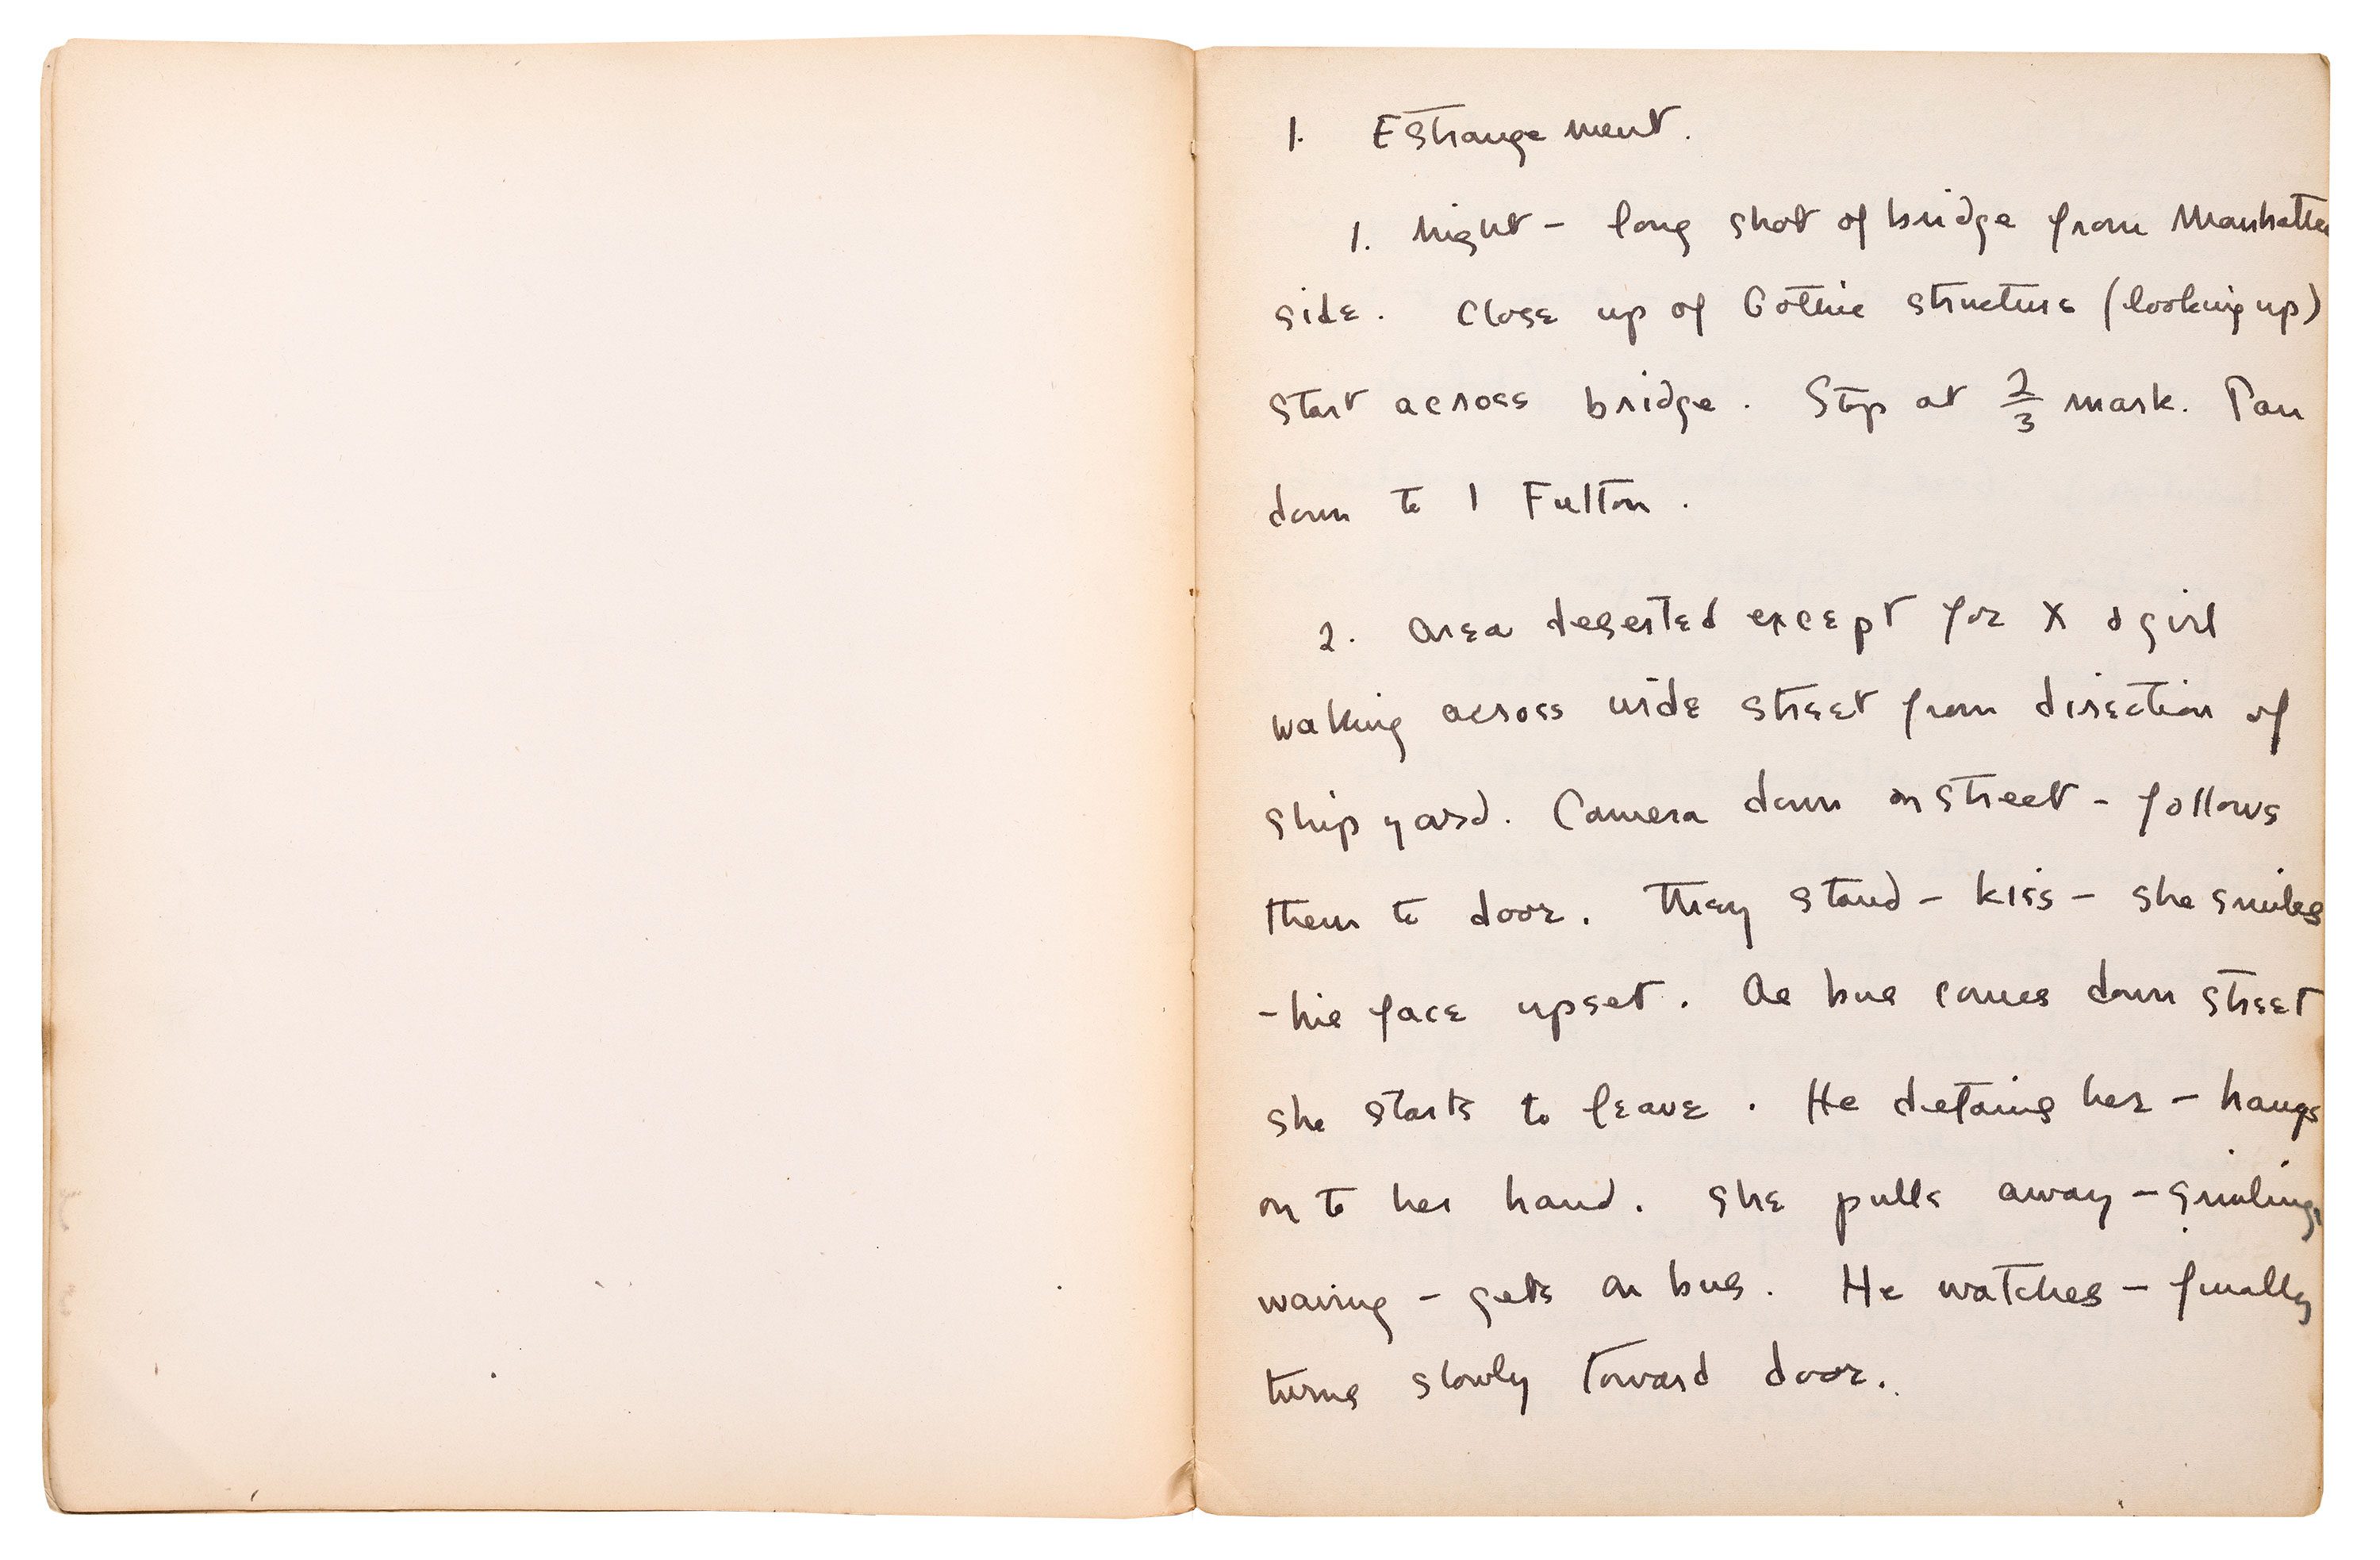 1. Estrangement.
1. Night – long shot of bridge from Manhattan
side. Close up of Gothic structure (looking up)
Start across bridge. Stop at 2/3 mark. Pan
down to 1 Fulton.
2. Area deserted except for X & girl
walking across wide street from direction of
ship yard. Camera down on street – follows
them to door. They stand – kiss – she smiles
– his face upset. As bus comes down street
she starts to leave. He detains her – hangs
on to her hand. She pulls away – smiling,
waving – gets on bus. He watches – finally
turns slowly toward door.